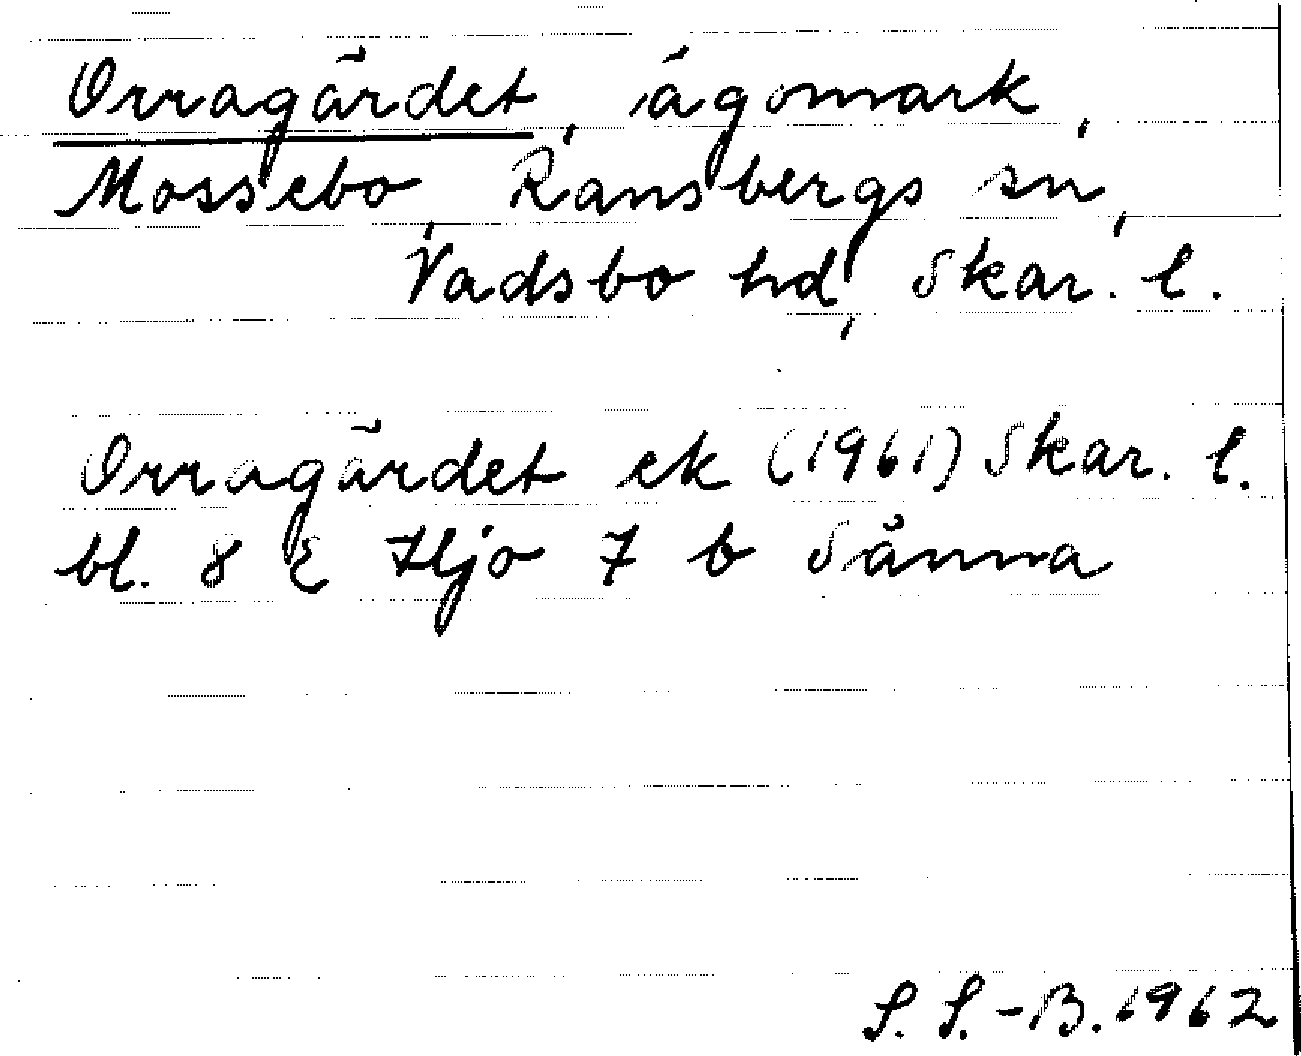 Orragärdet, ägomark,
Mossebo, Ransbergs sn,
Vadsbo hd, Skar. l.
Orragärdet ek (1961) Skar. l.
bl. 8 E Hjo 7 b Sånna
S. S.-B. 1962